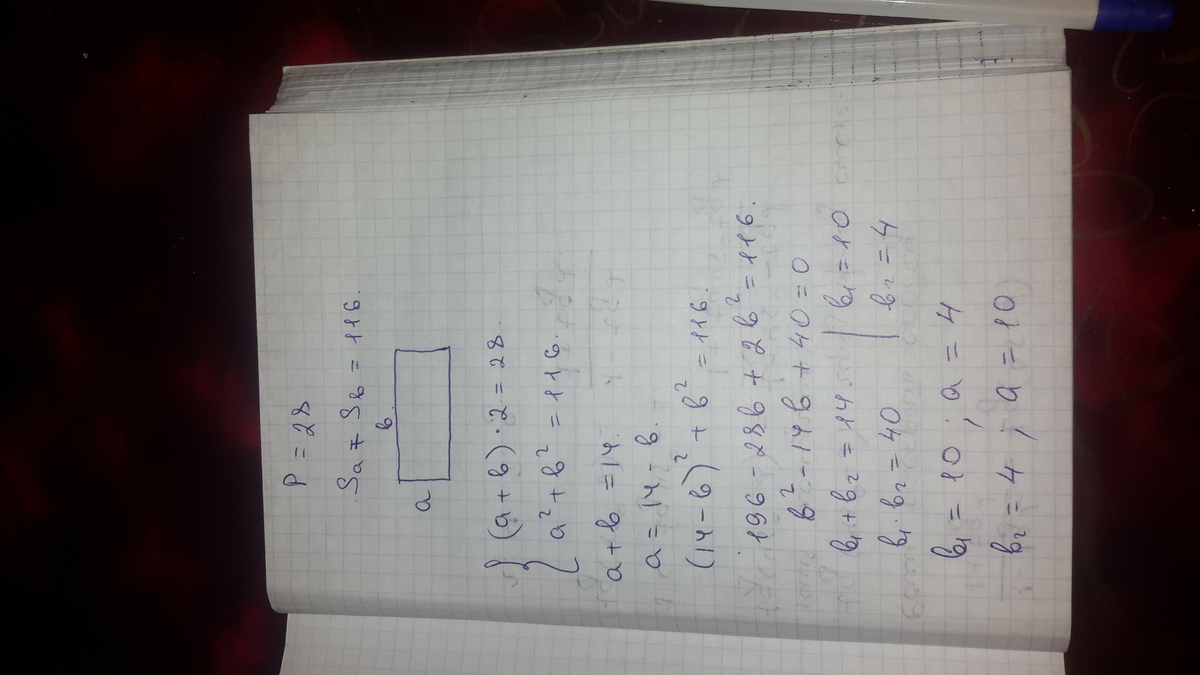 P = 28
Sa + Sв = 116.
в
a
{ (a + в) · 2 = 28.
a² + в² = 116.
a + в = 14.
a = 14 - в.
(14 - в)² + в² = 116.
196 - 28в + 2в² = 116.
в² - 14в + 40 = 0
в₁ + в₂ = 14 | в₁ = 10
в₁ · в₂ = 40 | в₂ = 4
в₁ = 10 ; a = 4
в₂ = 4 ; a = 10